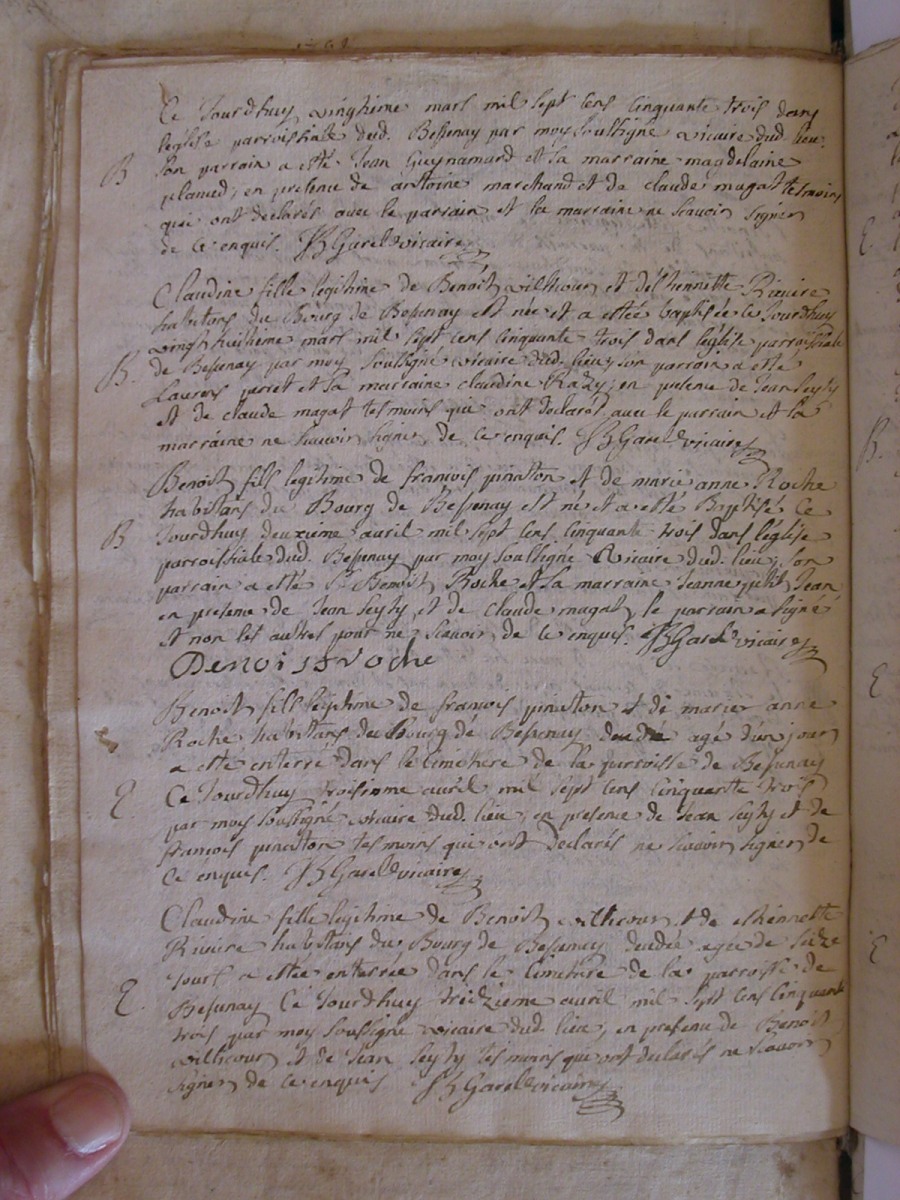 Ce Jourdhuy vingtieme mars mil sept cens cinquante trois dans
leglise parroissiale dud. Bessenay par moy soussigné vicaire dud. lieu.
B
son parrain a esté Jean Guynamard et la marraine magdelaine
en presence de antoine marchand et de claude magat tesmoins
qui ont declarés avec le parrain et la marraine ne scavoir signer
de ce enquis. Garel vicaire
Claudine fille legitime de Benoit villicour et d'esthiennette Riviere
habitans du Bourg de Bessenay est née et a estée baptisée ce Jourdhuy
vingt huitieme mars mil sept cens cinquante trois dans leglise parroissiale
B.
de Bessenay par moy soussigné vicaire dud. lieu, son parrain a esté
Laurens perret et la marraine claudine Razy, en presence de Jean Seyty
et de claude magat tesmoins qui ont declarés avec le parrain et la
marraine ne scavoir signer de ce enquis. Garel vicaire
Benoit fils legitime de françois pinatton et de marie anne Roche
habitans du Bourg de Bessenay est né et a esté Baptisé ce
B
Jourdhuy deuxieme avril mil sept cens cinquante trois dans leglise
parroissiale dud. Bessenay par moy soussigné vicaire dud. lieu, son
parrain a esté Sr Benoit Roche et la marraine Jeanne petit Jean
en presence de Jean Seyty et de claude magat, le parrain a signé
et non les autres pour ne scavoir, de ce enquis. Garel vicaire
Benoist roche
Benoit fils legitime de françois pinatton et de marie anne
Roche habitans du Bourg de Bessenay agé d'un jour
a esté enterré dans le cimetiere de la parroisse de Bessenay
E.
Ce Jourdhuy troisieme avril mil sept cens cinquante trois
par moy soussigné vicaire dud. lieu, en presence de Jean Seyty et de
françois pinatton tesmoins qui ont declarés ne scavoir signer de
ce enquis. Garel vicaire
Claudine fille legitime de Benoit villicour et de esthiennette
Riviere habitans du Bourg de Bessenay agée de seize
jours a estée enterrée dans le cimetiere de la parroisse de
E.
Bessenay Ce Jourdhuy treizieme avril mil sept cens cinquante
trois par moy soussigné vicaire dud. lieu, en presence de Benoit
villicour et de Jean Seyty tesmoins qui ont declarés ne scavoir
signer de ce enquis Garel vicaire